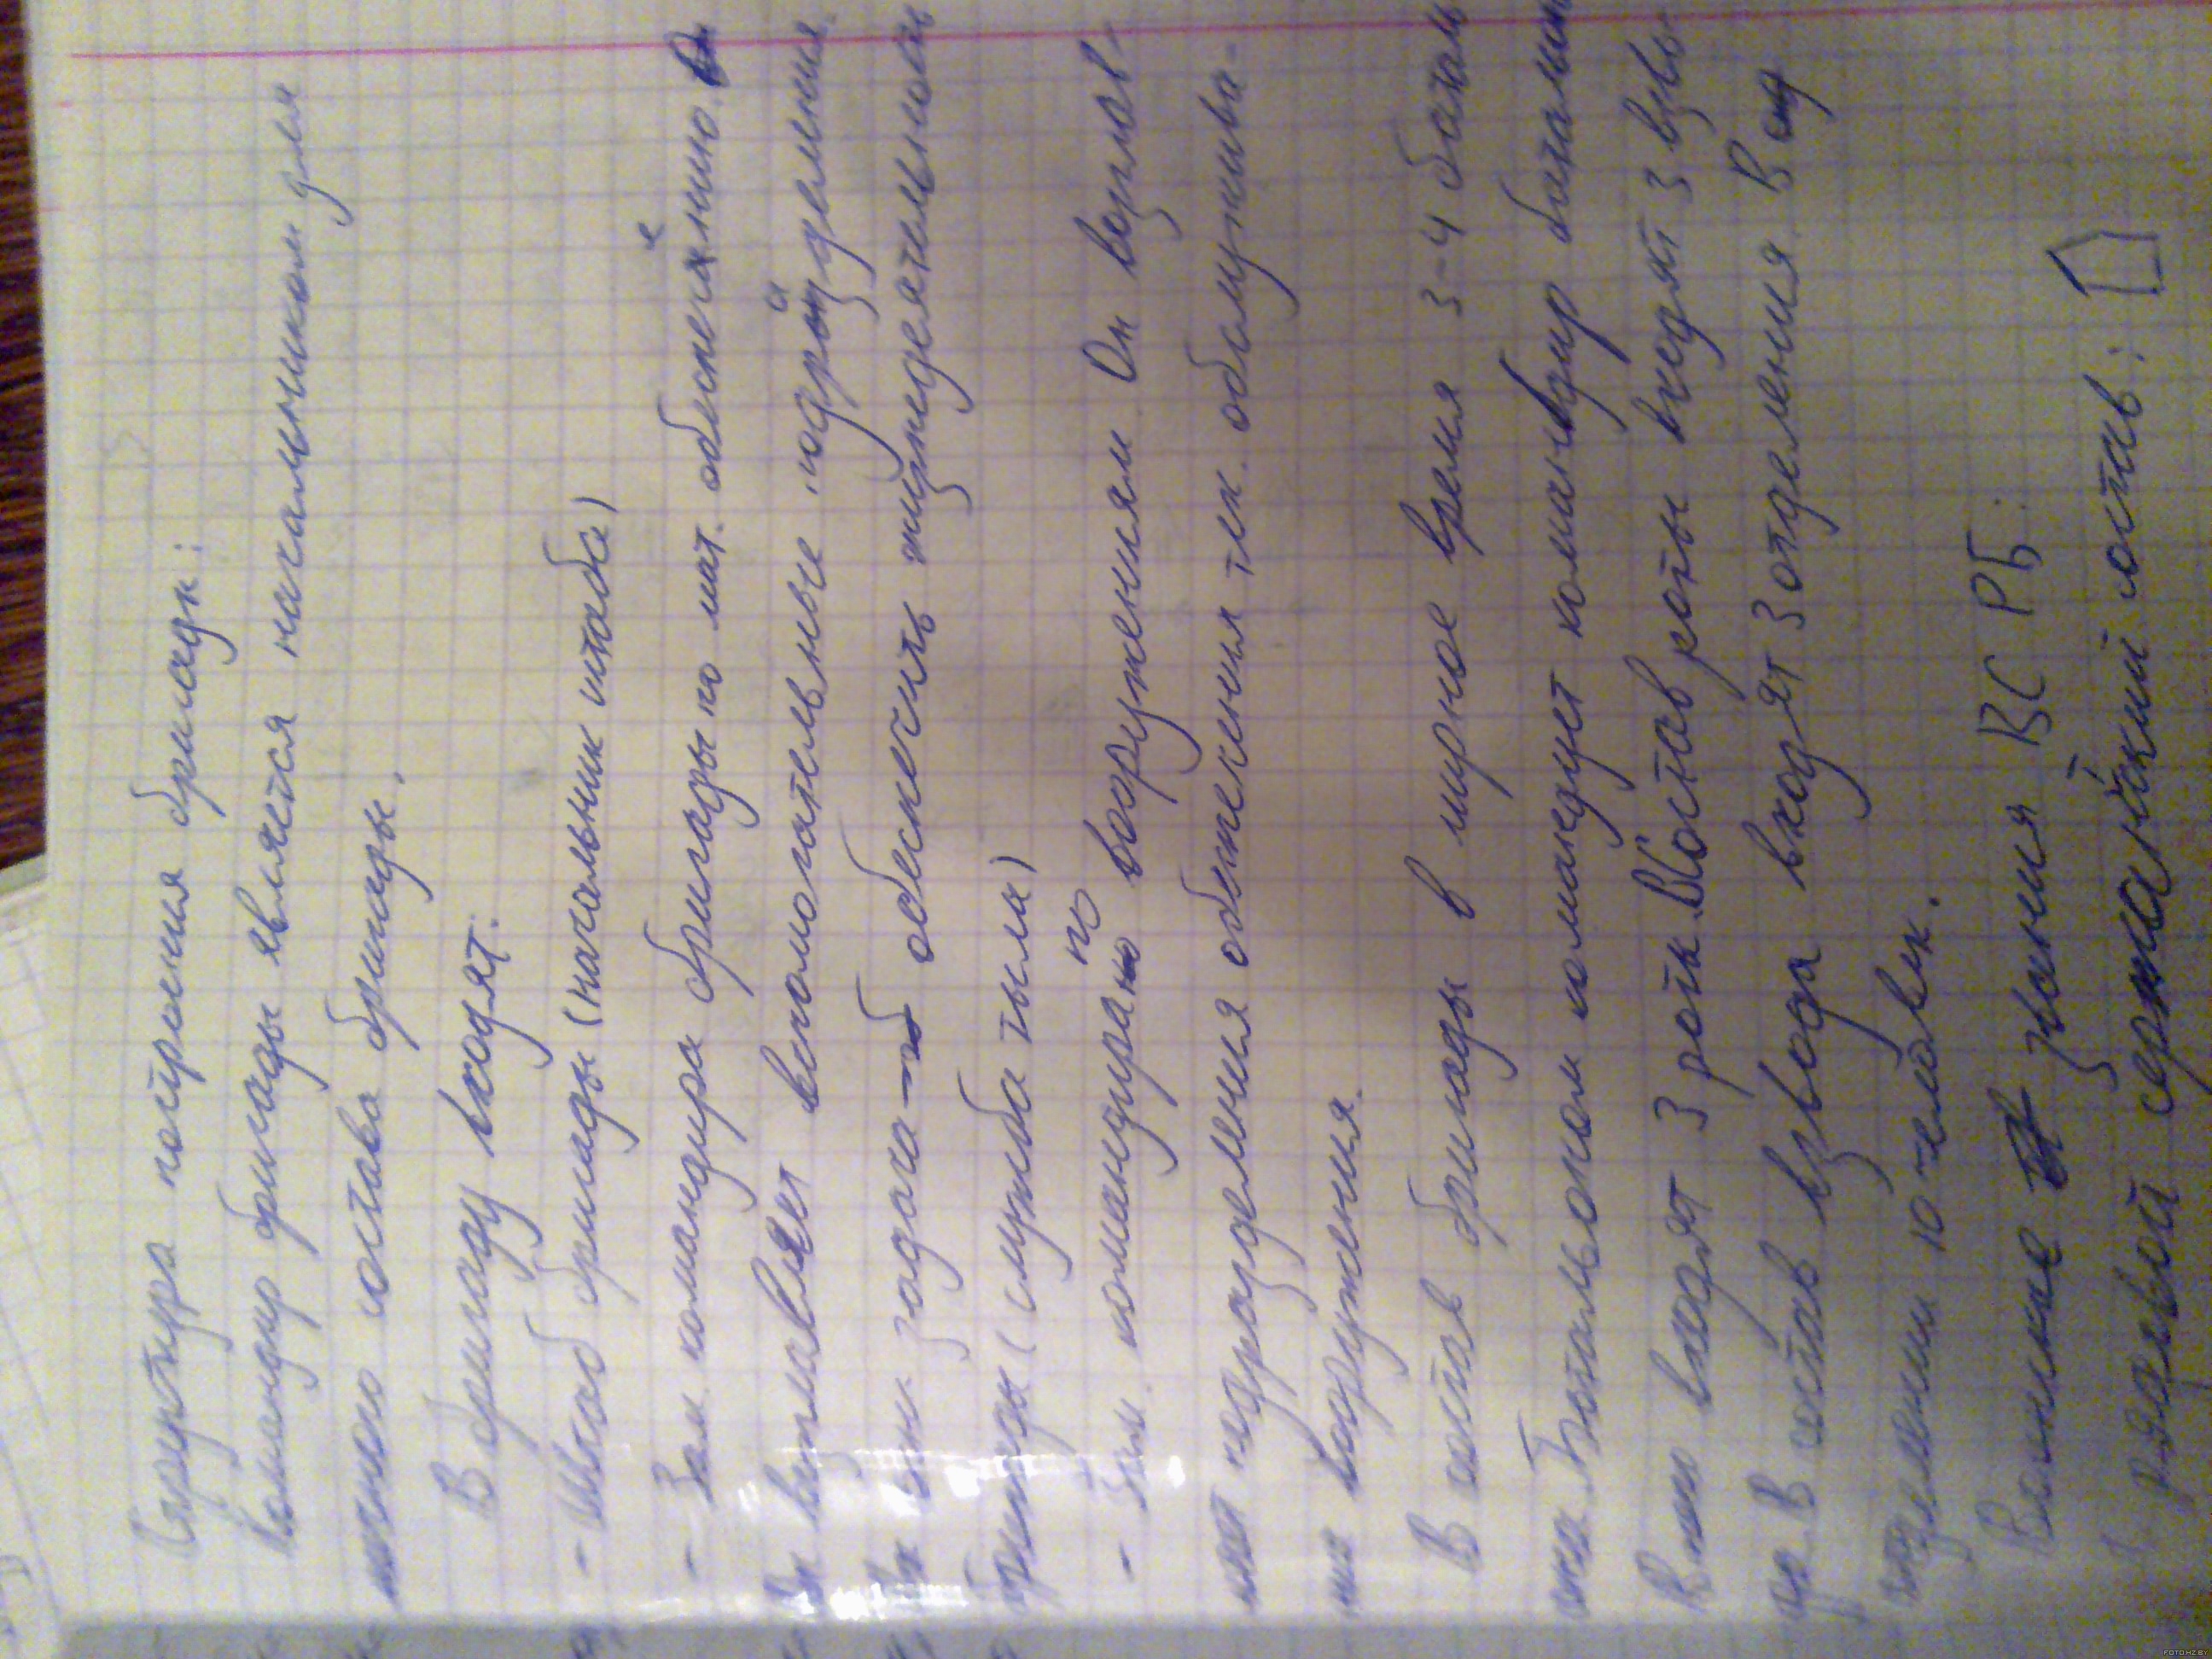 Структура построения бригады:
Командир бригады является начальником для
личного состава бригады.
В бригаду входят:
- Штаб бригады (начальник штаба)
- Зам. командира бригады по мат. обеспечению.
Он возглавляет вспомогательные подразделения.
задача - обеспечить жизнедеятельность
бригады (служба тыла)
- Зам. командира по вооружениям Он возглав-
ляет подразделения обеспечения тех. обслужива-
ния вооружения.
В состав бригады в мирное время 3-4 батальо
она. Батальоном командует командир батальона
В него входят 3 роты. В Состав роты входят 3 взво-
да. В состав взвода входят 3 отделения. В
отделении 10 человек.
Воинские звания ВС РБ:
1. рядовой сержанский состав:
FOTO.HZ.BY